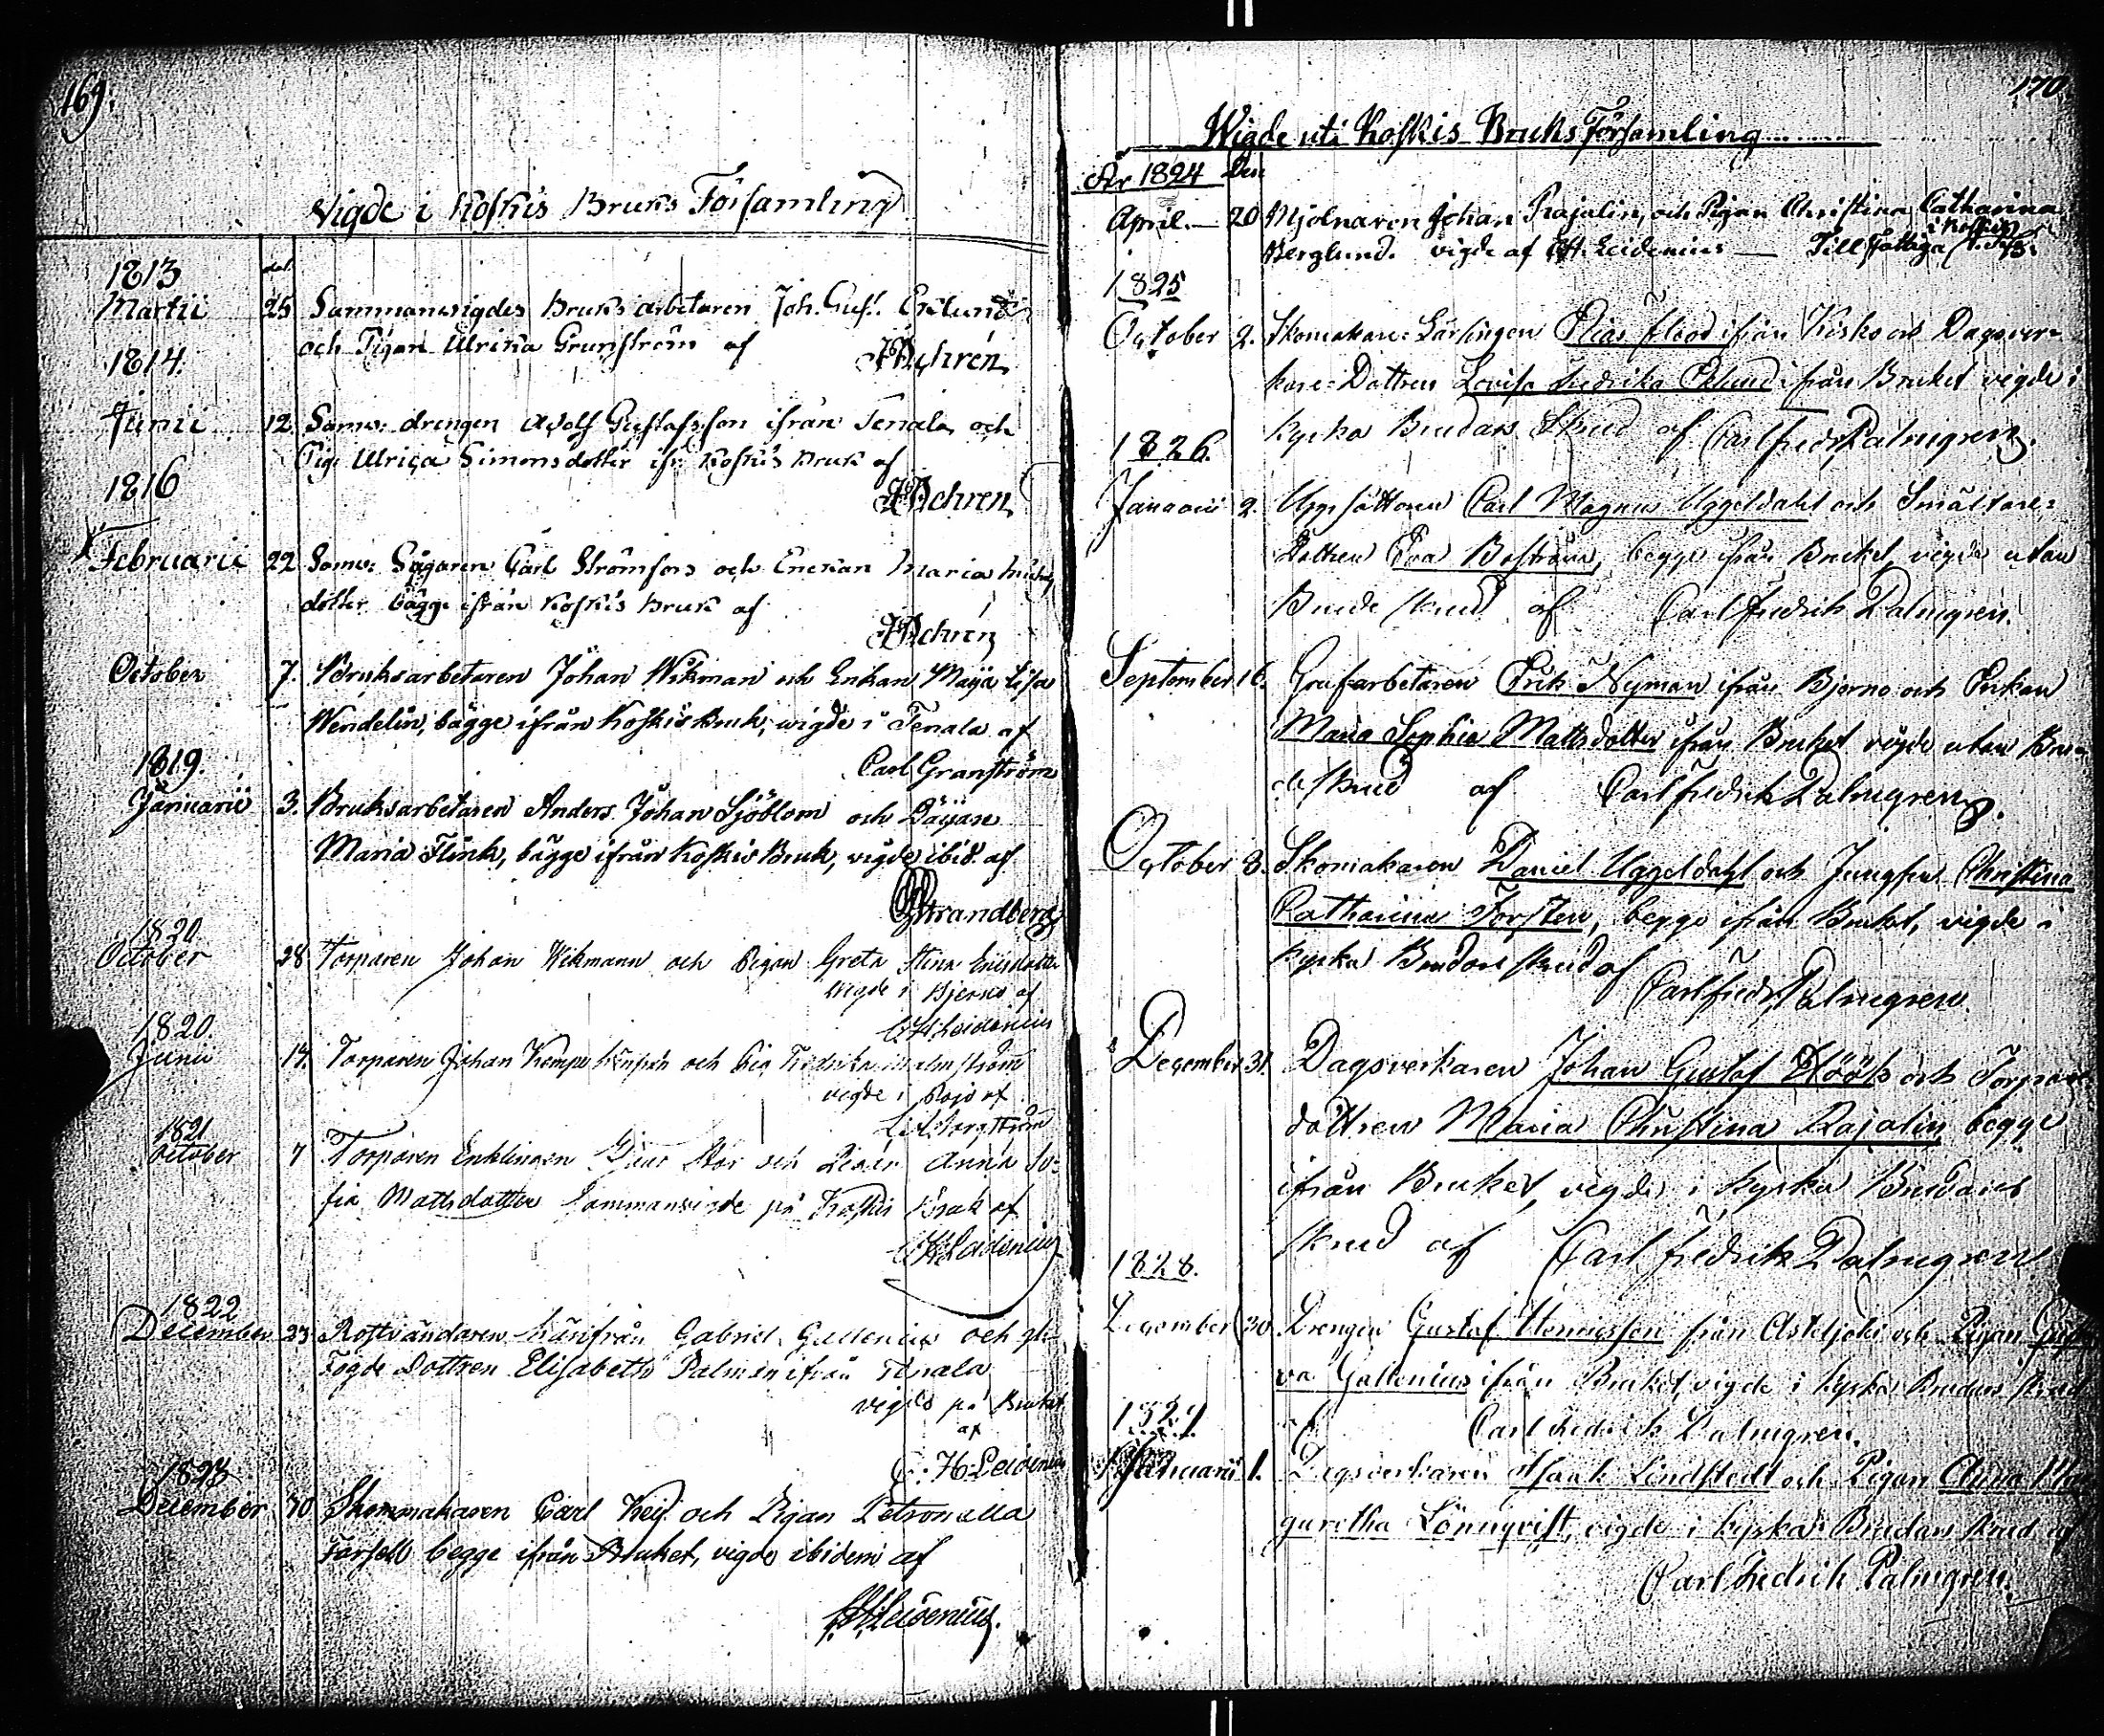 169.
Vigde i Koskis Bruks Församling
1813
Martii 25 Sammanvigdes Bruks arbetaren Joh. Gust. Eklund
och Pigan Ulrika Grunström af
1814.
Junii 12. Samv: drengen Adolf Gustafsson ifrån Tenala och
Pig. Ulrica Simonsdotter ifr: Koskis Bruk af
1816
Februarii 22 Samv: Sågaren Carl Strömfors och Enckan Maria
dotter bägge ifrån Koskis Bruk af
October 7. Bruksarbetaren Johan Wikman och Enkan Maija Lisa
Wendelin, bägge ifrån Koskis Bruk, wigde i Tenala af
Carl Granström
1819.
Januarii 3. Bruksarbetaren Anders Johan Sjöblom och
Maria Flink, bägge ifrån Koskis Bruk, vigde ibid. af
Strandberg
1820.
October 28 Torparen Johan Wikmann och Pigan Greta Stina Ericsdotter
vigde i Bjerno af
C H Leidenius
1820.
Junii 14. Torparen Johan Kempe och Pig. Fredrika Malmström
vigde i Pojo af
1821
October 7 Torparen Enklingen Stor och Pigan Anna So-
fia Mattsdotter Sammanvigde på Koskis Bruk af
C H Leidenius
1822
December 23 Rostvändaren härifrån Gabriel Gallenius och
Fogde Dottren Elisabeth Palmen ifrån Tenala
vigde på Bruket
af
C: H: Leidenius
1823
December 30 Skommakaren Carl och Pigan Petronella
Forsell begge ifrån Bruket, vigde ibidem af
C H Leidenius.
170
Wigde uti Koskis Bruks Församling
År 1824 Den
April. — 20 Mjolnaren Johan Rajalin, och Pigan Christina Catharina
Berglund. vigde af C H. Leidenius — Till Fattiga
i Koskis
1825
October 2. Skomakare-Lärlingen Elias Flood ifrån Kisko och Dagsver-
kare-Dottren Lovisa Fredrika Eklund ifrån Bruket vigde i
Kyrko Brudars Skrud af Carl Fredr. Palmgren.
1826.
Januarii 2. Uppsättaren Carl Magnus Uggeldahl och Smältare-
Dottren Eva Boström, begge ifrån Bruket, vigde utan
Brude skrud af Carl Fredrik Palmgren.
September 16. Grufarbetaren Erik Nyman ifrån Bjerno och Enkan
Maria Sophia Mattsdotter ifrån Bruket vigde utan Bru-
de skrud af Carl Fredrik Palmgren.
October 8. Skomakaren Daniel Uggeldahl och Jungfru Christina
Catharina Forsten, begge ifrån Bruket, vigde i
Kyrko Brudars skrud af
Carl Fredr. Palmgren.
December 31. Dagsverkaren Johan Gustaf Höök och Torpare
dottren Maria Christina Rajalin begge
ifrån Bruket, vigde i Kyrko Brudars
skrud af Carl Fredrik Palmgren
1828.
December 30 Drengen Gustaf Henricsson från Asteljoki och Pigan
va Gallenius ifrån Bruket vigde i Kyrko Brudars skrud
af Carl Fredrik Palmgren.
1829
Januarii 1. Dagsverkaren Isaak Lindstedt och Pigan Anna Mar
garetha Lönnqvist, vigde i Kyrko Brudars skrud af
Carl Fredrik Palmgren.